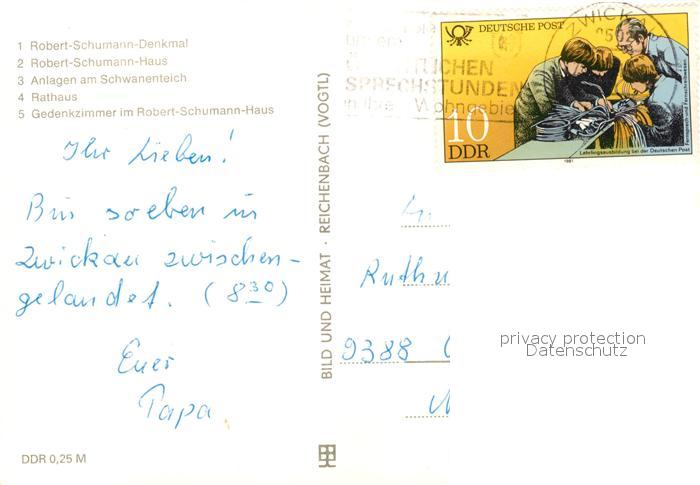 1 Robert-Schumann-Denkmal
2 Robert-Schumann-Haus
3 Anlagen am Schwanenteich
4 Rathaus
5 Gedenkzimmer im Robert-Schumann-Haus
Ihr Lieben!
Bin soeben in
Zwickau zwischen-
gelandet. (8³⁰)
Euer
Papa
DDR 0,25 M
BILD UND HEIMAT · REICHENBACH (VOGTL)
DEUTSCHE POST
10
DDR
Lehrlingsausbildung bei der Deutschen Post
1981
ZWICKAU
LICHEN
SPRECHSTUNDEN
Wohngebie
Ruth
9388
privacy protection
Datenschutz